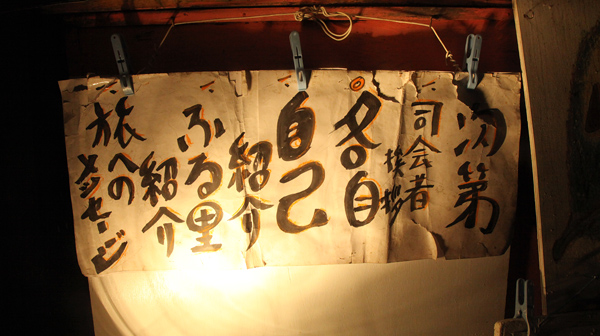 次第
司会者
挨拶
各自
自己
紹介
ふる里
紹介
旅への
メッセージ